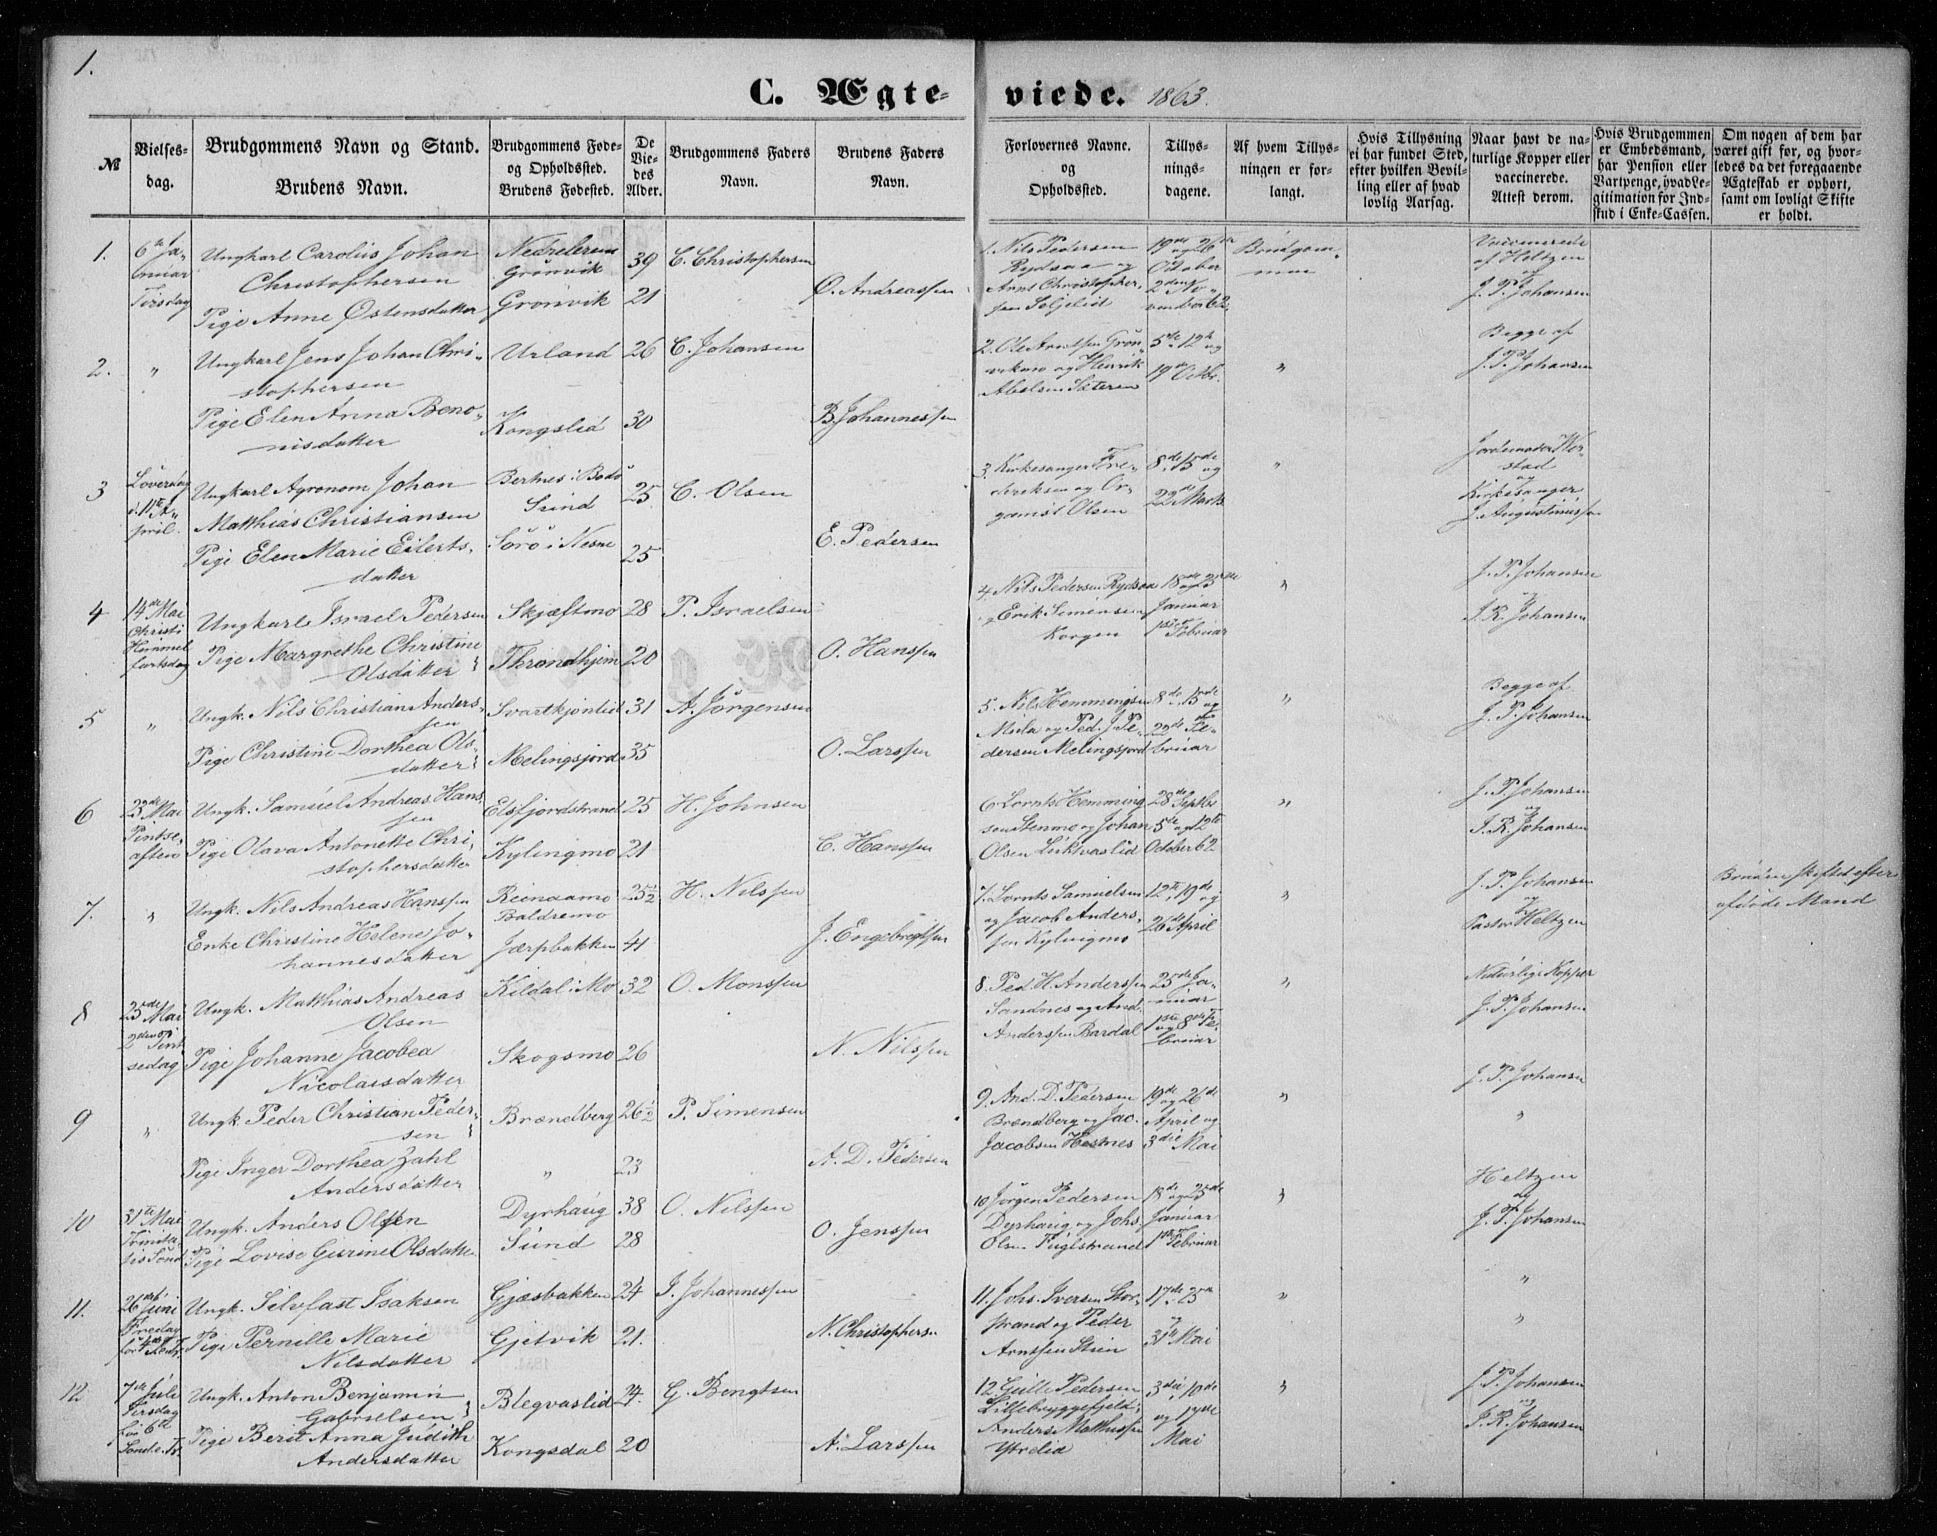 1.
C. Ægte-viede. 1863.
№
Vielses-
dag.
Brudgommens Navn og Stand.
Brudens Navn.
Brudgommens Føde-
og Opholdssted.
Brudens Fødested.
De
Vie-
des
Alder.
Brudgommens Faders
Navn.
Brudens Faders
Navn.
Forlovernes Navne.
og
Opholdssted.
Tillys-
nings-
dagene.
Af hvem Tillys-
ningen er for-
langt.
Hvis Tillysning
ei har fundet Sted,
efter hvilken Bevil-
ling eller af hvad
lovlig Aarsag.
Naar havt de na-
turlige Kopper eller
vaccinerede.
Attest derom.
Hvis Brudgommen
er Embedsmand,
har Pension eller
Vartpenge, hvad Le-
gitimation for Ind-
skud i Enke-Cassen.
Om nogen af dem har
været gift før, og hvor-
ledes da det foregaaende
Ægteskab er ophørt,
samt om lovligt Skifte
er holdt.
1.
6te Ja-
nuar
Tirsdag
Ungkarl Carolius Johan
Christophersen
Pige Anne Østensdatter
Grønvik
Grønvik
39
21
C. Christophersen
O. Andreassen
1. Nils Pedersen
Rydsaa og
Arnt Christopher-
sen Seljelid
19de og 26de
October
2den No-
vember 62.
Brudgom-
men
Vaccinerede
af Heltzen
og
J. P. Johansen
2.
"
Ungkarl Jens Johan Chri-
stophersen
Pige Elen Anna Beno-
nisdatter
Urland
Kongslid
26
30
C. Johansen
B. Johannessen
2. Ole Arntsen Grøn-
vikmo og Henrik
Abelsen Sæteren
5te, 12te og
19de Octbr.
"
Begge af
J. P. Johansen
3
Løverdag
d. 11te A-
pril.
Ungkarl Agronom Johan
Matthias Christiansen
Pige Elen Marie Eilerts-
datter
Bertnes i Bodø
Sund
Sørø i Nesne
25
25
C. Olsen
E. Pedersen
3. Kirkesanger Fre-
deriksen og Or-
gamst Olsen
8de, 15de og
22de Marts
"
Jordemoder
og
Kirkesanger
J. Augustinussen
4
14de Mai
Christi
Himmel
fartsdag
Ungkarl Israel Pedersen
Pige Margrethe Christine
Olsdatter
Skjæftmo
Throndhjem
28
20
P. Israelsen
O. Hanssen
4. Nils Pedersen Rydsaa
Erik Simensen
Korgen
18de og 25de
Januar
1ste Februar
"
J. P. Johansen
og
J. R. Johansen
5
"
Ungk. Nils Christian Anders-
sen
Pige Christine Dorthea Ols-
datter
Svartkjønlid
Melingsjord
31
35
A. Jørgensen
O. Larssen
5. Nils Hemmingsen
Mula og Ped. J. Pe-
dersen Melingsjord
8de, 15de og
22de Fe-
bruar
"
Begge af
J. P. Johansen
6
23de Mai
Pintse-
aften
Ungk. Samuel Andreas Hans-
sen
Pige Olava Antonette Chri-
stophersdatter
Elsfjordstrand
Kylingmo
25
21
H. Johnsen
C. Hanssen
6. Lornts Hemming-
sen Stenmo og Johan
Olsen Luktvaslid
28de Septbr
5te og 12te
October 62.
"
J. P. Johansen
og
J. R. Johansen
7.
"
Ungk. Nils Andreas Hanssen
Enke Christine Helene Jo-
hannesdatter
Reinaamo
Baldremo
Jærpbakken
25½
41
H. Nilssen
J. Engebregtsen
7. Lornts Samuelsen
og Jacob Anders-
sen Kylingmo
12te, 19de og
26de April
"
J. P. Johansen
og
Pastor Heltzen
Bruden skiftet efter
afdøde Mand
8
25de Mai
2den Pint
sedag
Ungk. Matthias Andreas
Olsen
Pige Johanne Jacobea
Nicolaisdatter
Kildal i Mo
Skogsmo
32
26
O. Monssen
N. Nilssen
8. Ped. H. Anderssen
Sandnes og And.
Anderssen Bardal
25de Ja-
nuar
1ste og 8de Fe-
bruar
"
Naturlige Kopper
J. P. Johansen
9
"
Ungk. Peder Christian Peder-
sen
Pige Inger Dorthea Zahl
Andersdatter
Brændberg
"
26½
23
P. Simensen
A. D. Pedersen
9. And. D. Pedersen
Brændberg og Jac.
Jacobsen Hesnes
19de og 26de
April og
3die Mai
"
J. P. Johansen
"
10
31te Mai
Trinita-
tis Sønd.
Ungk. Anders Olssen
Pige Lovise Gurine Olsdatter
Dyrhaug
Sund
38
28
O. Nilssen
O. Jenssen
10 Jørgen Pedersen
Dyrhaug og Johs.
Olsen Fuglstrand
18de og 25de
Januar
1ste Februar
"
Heltzen
og
J. P. Johansen
11.
26de Juni
Fredag
Ungk. Silvfast Isaksen
Pige Pernille Marie
Nilsdatter
Gjæsbakken
Gjetvik
24
21.
I. Johannessen
N. Christophers.
11. Johs. Iversen Stor-
strand og Peder
Arntssen Stien
17de, 25de
og
31te Mai
"
"
"
12
7de Juli
Tirsdag
før 6te
Sønd. e. Tr.
Ungk. Anton Benjamin
Gabrielsen
Pige Berit Anna Judith
Andersdatter
Blegvaslid
Kongsdal
24.
20
G. Bengtsen
A. Larssen
12 Gulle Pedersen
Lillebryggefjeld
Anders Matthissen
Ytrelid
3die, 10de
og 17de
Mai
"
J. P. Johansen
og
J. R. Johansen